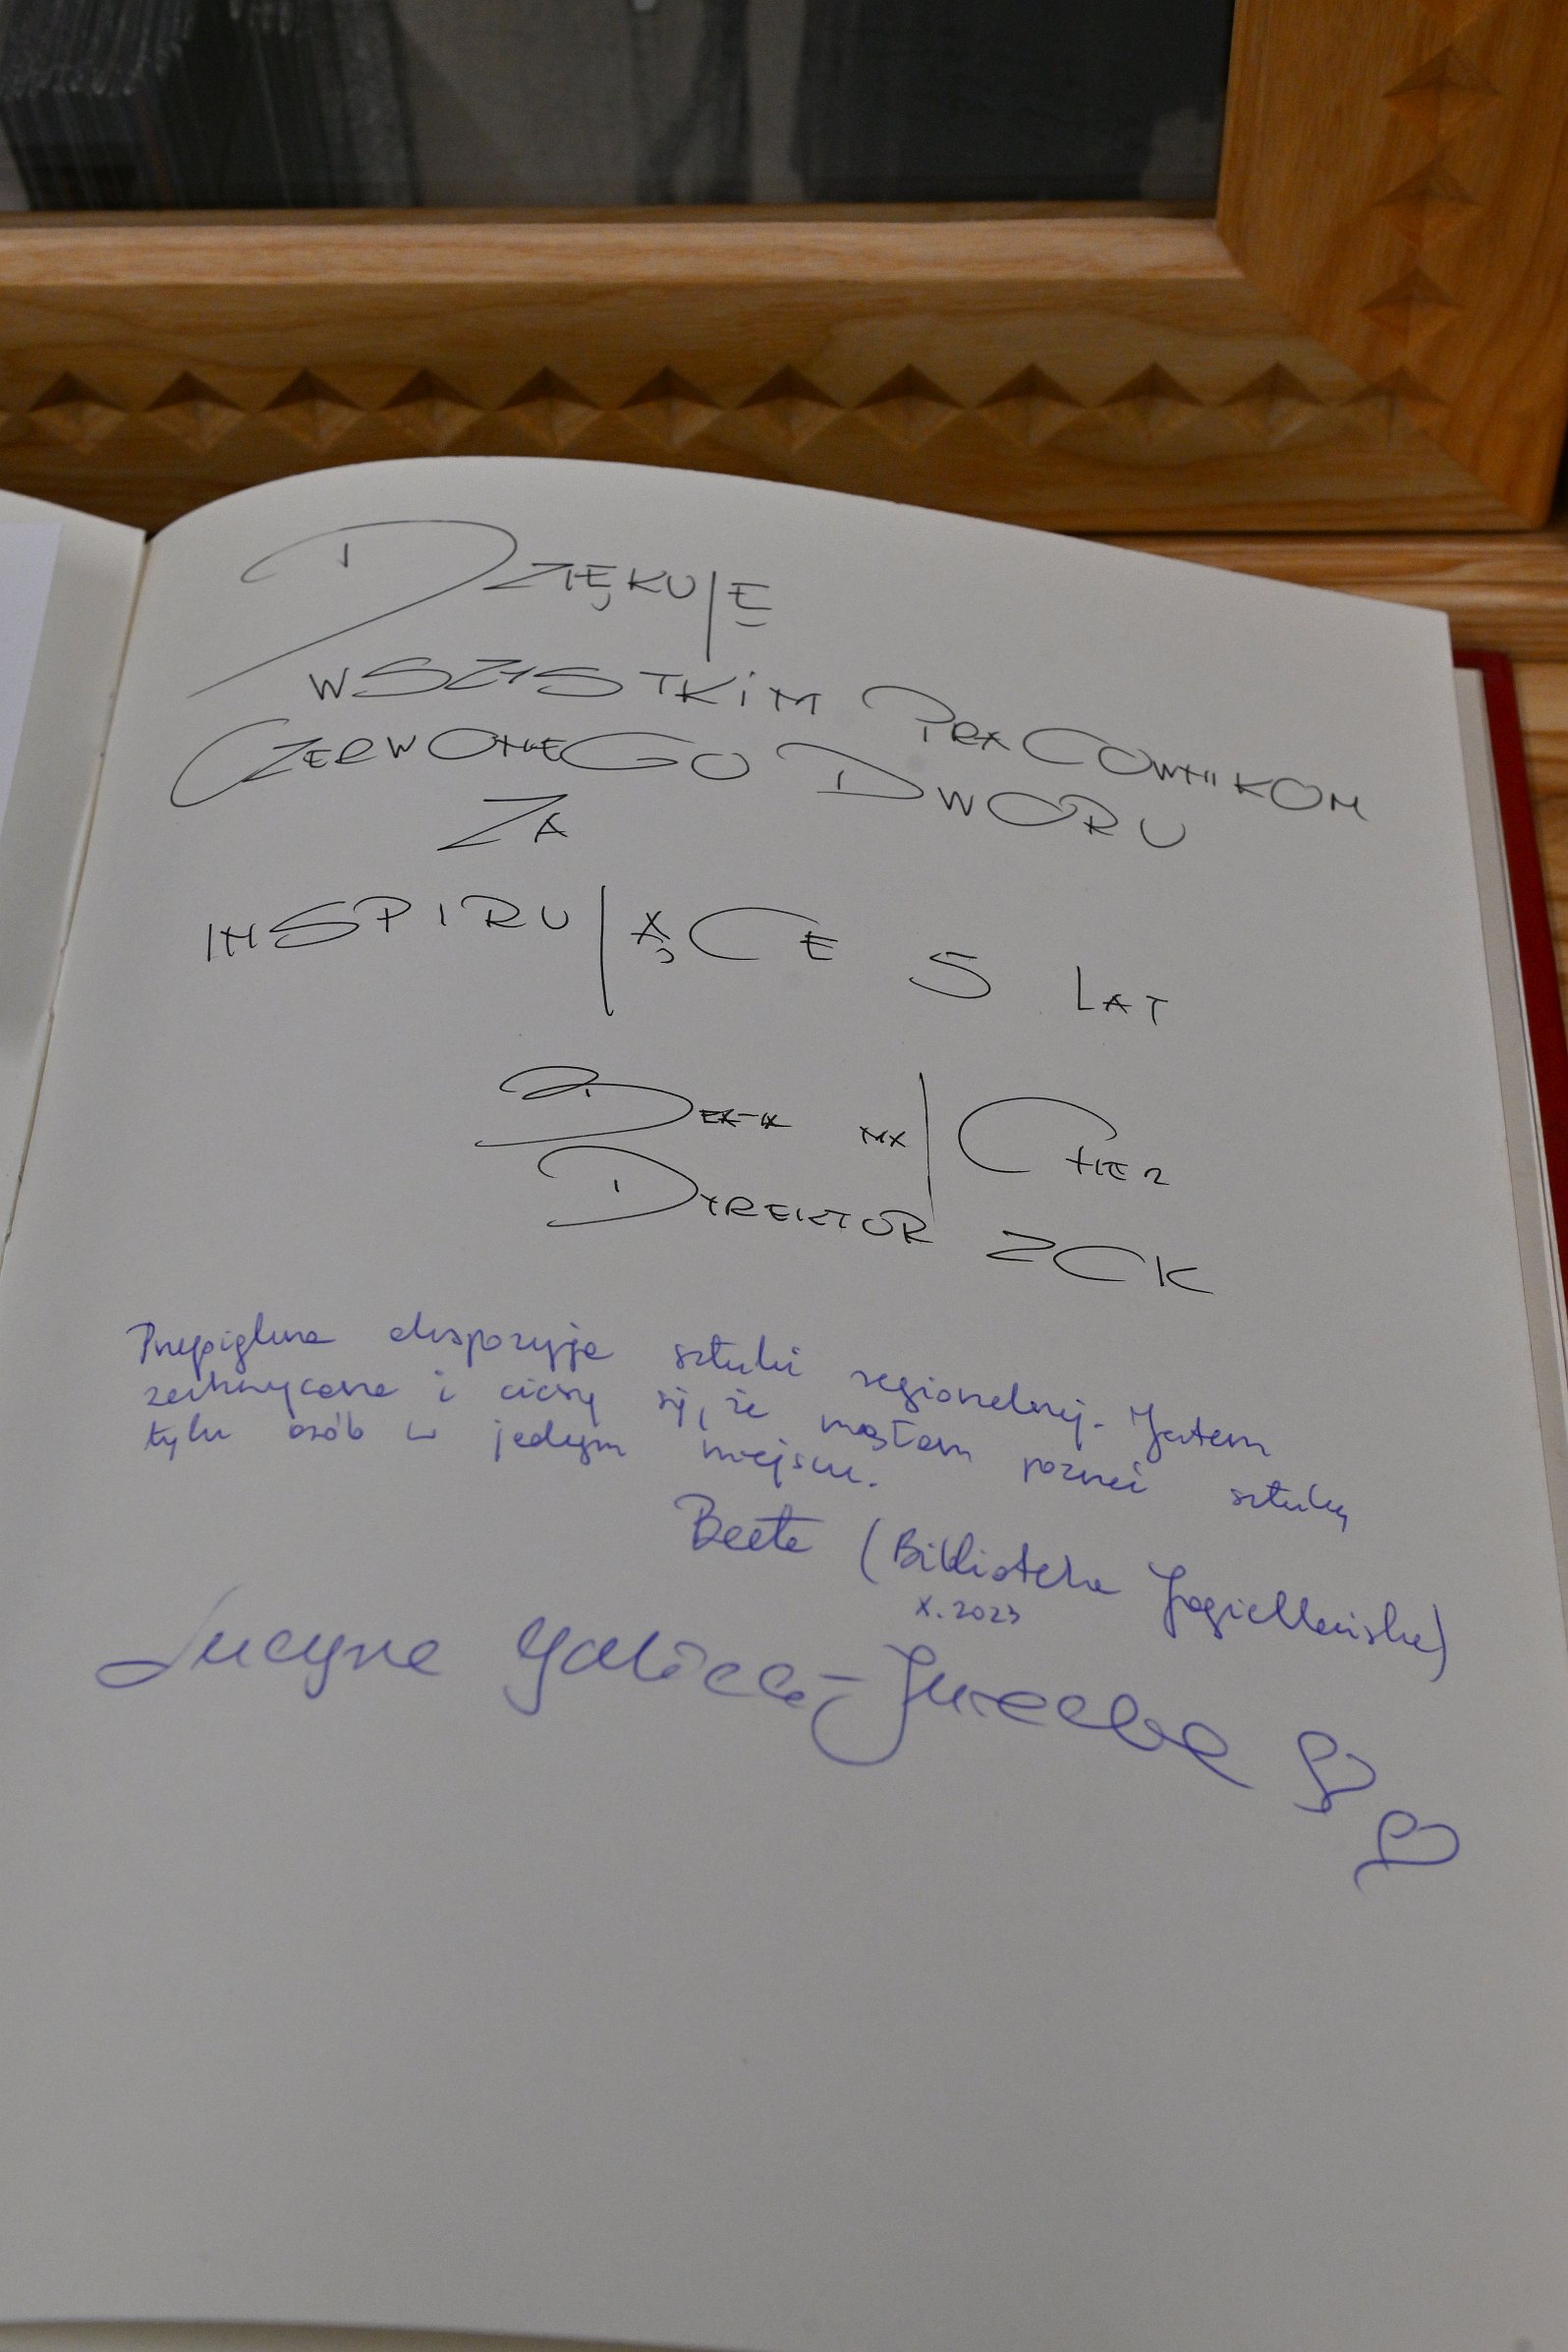 DZIĘKUJĘ
WSZYSTKIM PRACOWNIKOM
CZERWONEGO DWORU
ZA
INSPIRUJĄCE 5 LAT
BEATA MAJCHER
DYREKTOR ZCK
Przepiękna ekspozycja sztuki regionalnej. Jestem
zachwycona i cieszę się, że mogłam poznać sztukę
tylu osób w jednym miejscu.
Beata (Biblioteka Jagiellońska)
X.2023
Lucyna Galica-Jurecka